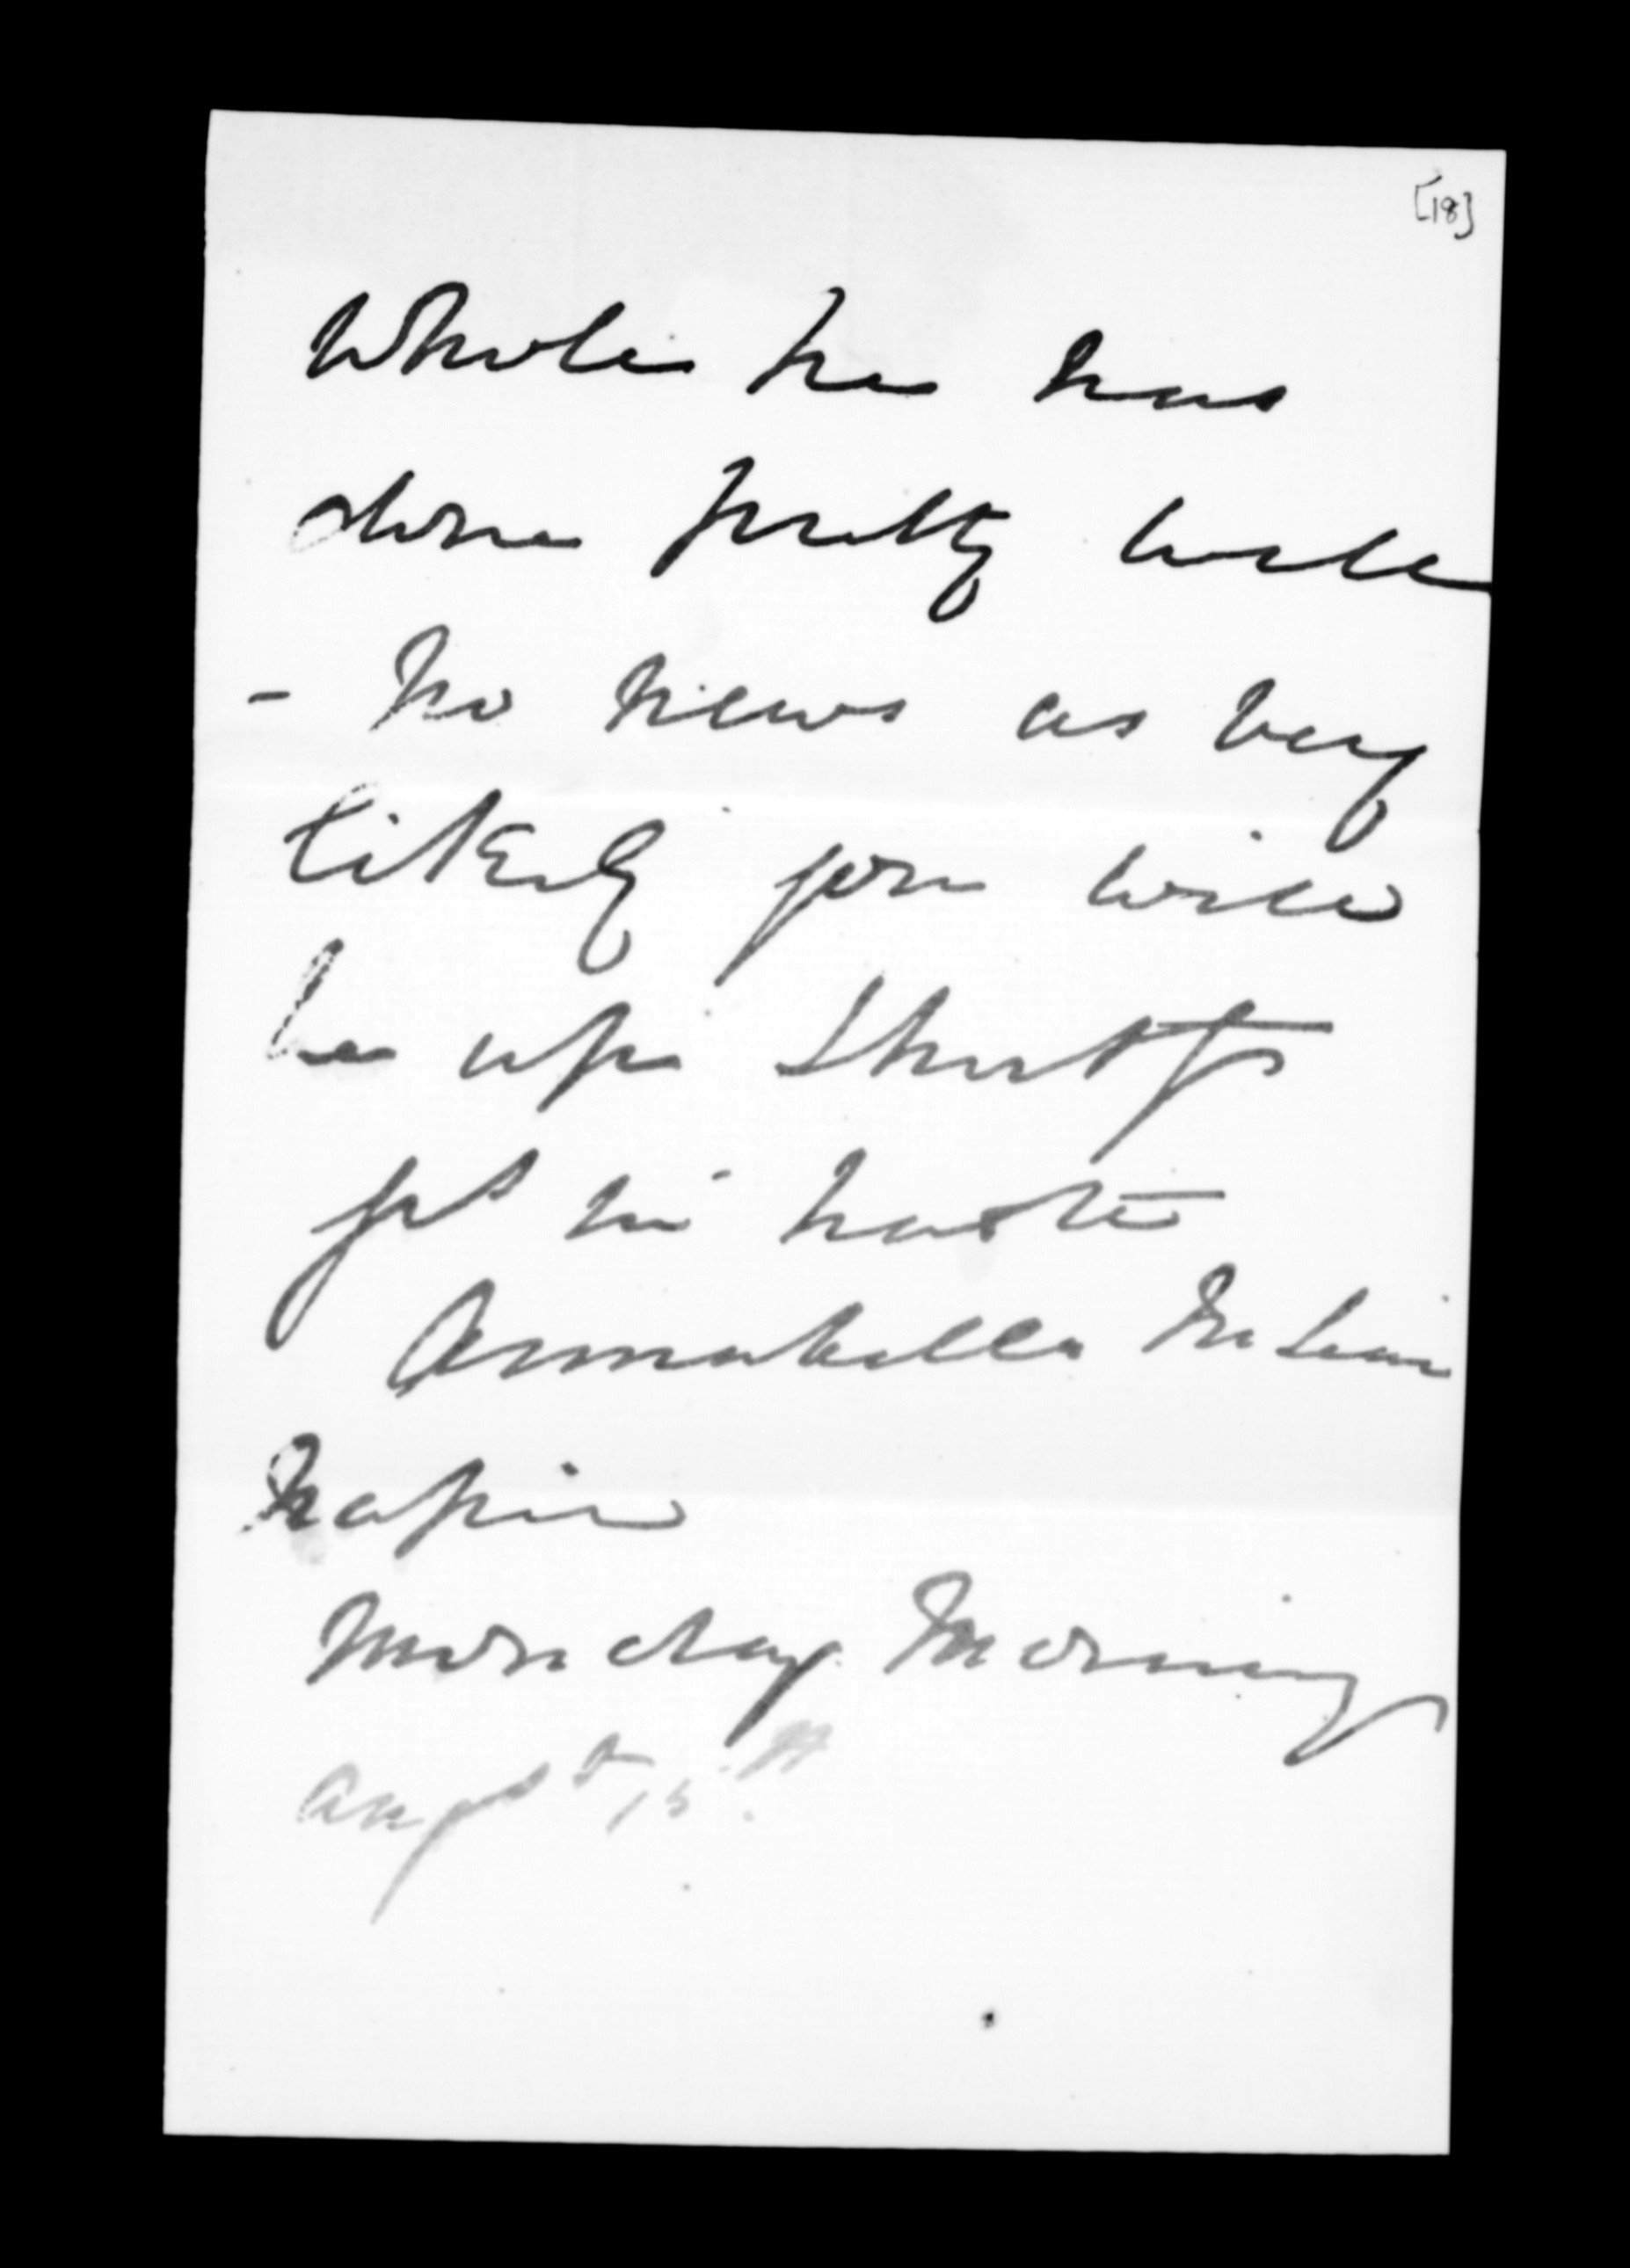 [18]
whole he has
done pretty well
- No news as very
likely you will
be up shortly
yrs in haste
Annabella McLean
Napier
Monday Morning
Augst 15th